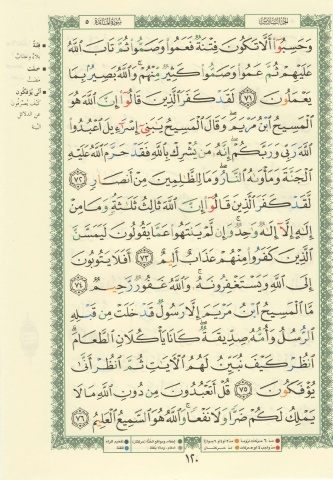 الجزء السادس
سورة المائدة ٥
وَحَسِبُوٓا۟ أَلَّا تَكُونَ فِتْنَةٌ فَعَمُوا۟ وَصَمُّوا۟ ثُمَّ تَابَ ٱللَّهُ
عَلَيْهِمْ ثُمَّ عَمُوا۟ وَصَمُّوا۟ كَثِيرٌ مِّنْهُمْ ۚ وَٱللَّهُ بَصِيرٌۢ بِمَا
يَعْمَلُونَ ٧١ لَقَدْ كَفَرَ ٱلَّذِينَ قَالُوٓا۟ إِنَّ ٱللَّهَ هُوَ
ٱلْمَسِيحُ ٱبْنُ مَرْيَمَ ۖ وَقَالَ ٱلْمَسِيحُ يَٰبَنِىٓ إِسْرَٰٓءِيلَ ٱعْبُدُوا۟
ٱللَّهَ رَبِّى وَرَبَّكُمْ ۖ إِنَّهُۥ مَن يُشْرِكْ بِٱللَّهِ فَقَدْ حَرَّمَ ٱللَّهُ عَلَيْهِ
ٱلْجَنَّةَ وَمَأْوَىٰهُ ٱلنَّارُ ۖ وَمَا لِلظَّٰلِمِينَ مِنْ أَنصَارٍ ٧٢
لَّقَدْ كَفَرَ ٱلَّذِينَ قَالُوٓا۟ إِنَّ ٱللَّهَ ثَالِثُ ثَلَٰثَةٍ ۘ وَمَا مِنْ
إِلَٰهٍ إِلَّآ إِلَٰهٌ وَٰحِدٌ ۚ وَإِن لَّمْ يَنتَهُوا۟ عَمَّا يَقُولُونَ لَيَمَسَّنَّ
ٱلَّذِينَ كَفَرُوا۟ مِنْهُمْ عَذَابٌ أَلِيمٌ ٧٣ أَفَلَا يَتُوبُونَ
إِلَى ٱللَّهِ وَيَسْتَغْفِرُونَهُۥ ۚ وَٱللَّهُ غَفُورٌ رَّحِيمٌ ٧٤
مَّا ٱلْمَسِيحُ ٱبْنُ مَرْيَمَ إِلَّا رَسُولٌ قَدْ خَلَتْ مِن قَبْلِهِ
ٱلرُّسُلُ وَأُمُّهُۥ صِدِّيقَةٌ ۖ كَانَا يَأْكُلَانِ ٱلطَّعَامَ ۗ
ٱنظُرْ كَيْفَ نُبَيِّنُ لَهُمُ ٱلْءَايَٰتِ ثُمَّ ٱنظُرْ أَنَّىٰ
يُؤْفَكُونَ ٧٥ قُلْ أَتَعْبُدُونَ مِن دُونِ ٱللَّهِ مَا لَا
يَمْلِكُ لَكُمْ ضَرًّا وَلَا نَفْعًا ۚ وَٱللَّهُ هُوَ ٱلسَّمِيعُ ٱلْعَلِيمُ ٧٦
فتنة
خلت
أنى يؤفكون
كيف يصرفون
عن الدلائل
١٢٠